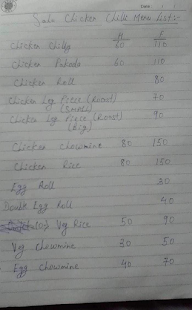 Chicken Chilly Menu List:-
H F
Chicken Chilly 60 110
Chicken Pakoda 60 110
Chicken Roll 80
Chicken Leg Piece (Roast) 70
(Small)
Chicken Leg Piece (Roast) 90
(Big)
Chicken Chowmine 80 150
Chicken Rice 80 130
Egg Roll 30
Double Egg Roll 40
Veg Rice 50 90
Veg Chowmine 30 50
Egg Chowmine 40 70